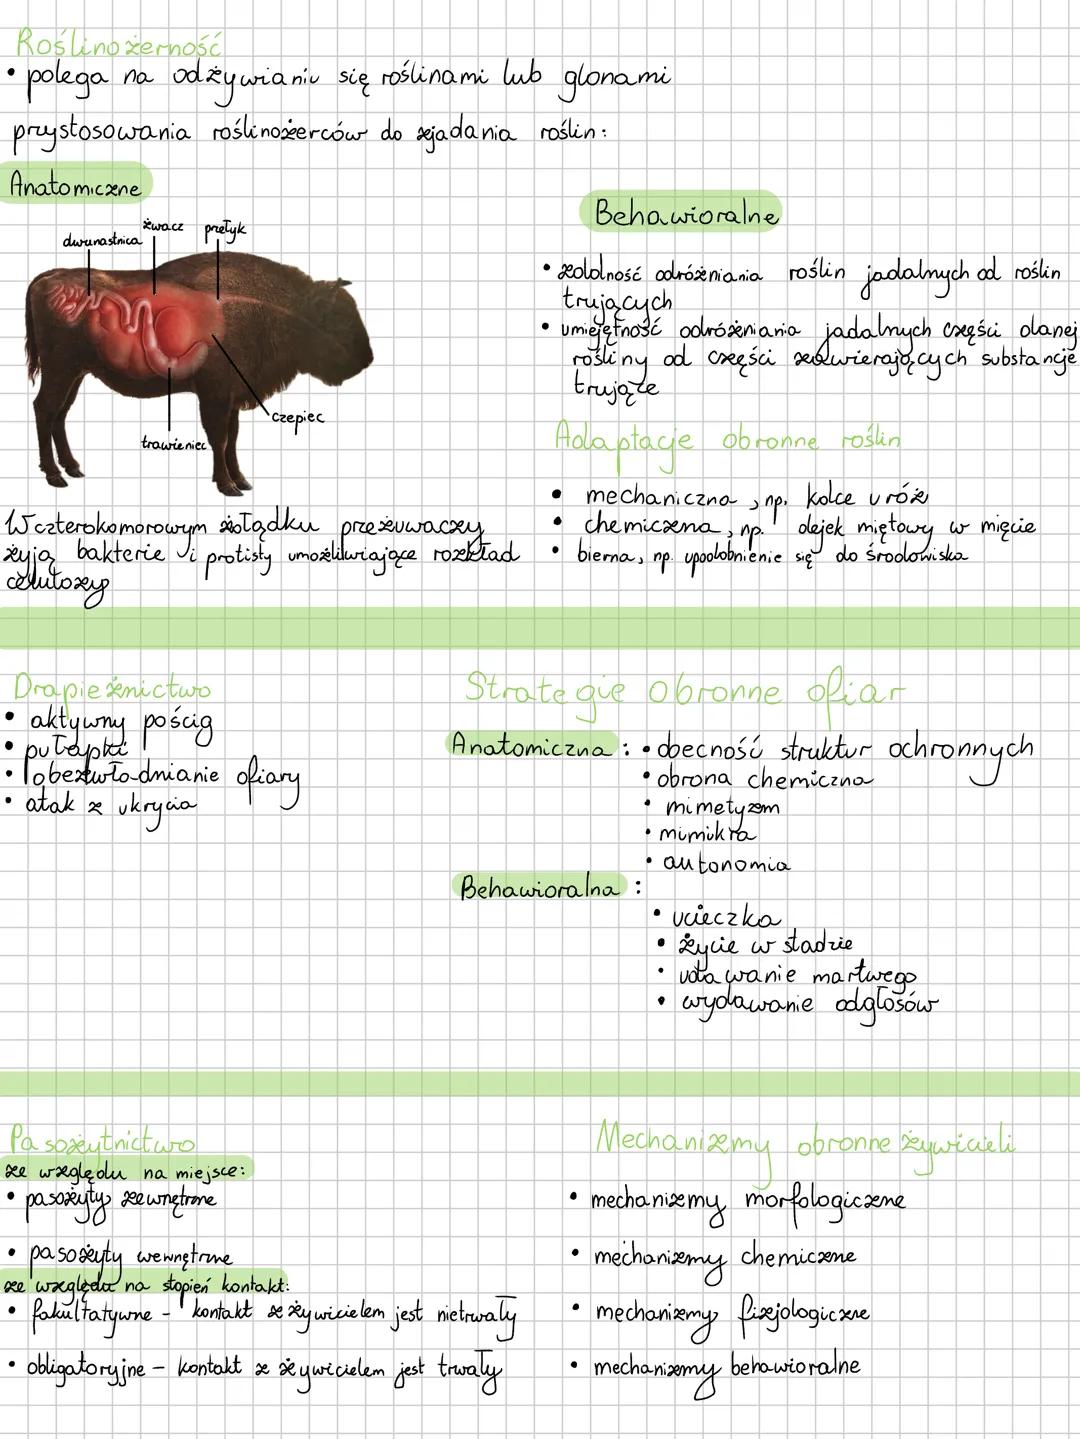 Roślinożerność
• polega na odżywianiu się roślinami lub glonami
przystosowania roślinożerców do zjadania roślin:
Anatomiczne
dwunastnica
żwacz
przełyk
czepiec
trawieniec
W czterokomorowym żołądku przeżuwaczy
żyją bakterie i protisty umożliwiające rozkład
celulozy
Behawioralne
• zdolność odróżniania roślin jadalnych od roślin
trujących
• umiejętność odróżniania jadalnych części danej
rośliny od części zawierających substancje
trujące
Adaptacje obronne roślin
• mechaniczna, np. kolce u róż
• chemiczna, np. olejek miętowy w mięcie
• bierna, np. upodobnienie się do środowiska
Drapieżnictwo
• aktywny pościg
• pułapki
• obezwładnianie ofiary
• atak z ukrycia
Strategie obronne ofiar
Anatomiczna: • obecność struktur ochronnych
• obrona chemiczna
• mimetyzm
• mimikra
• autonomia
Behawioralna:
• ucieczka
• życie w stadzie
• udawanie martwego
• wydawanie odgłosów
Pasożytnictwo
ze względu na miejsce:
• pasożyty zewnętrzne
• pasożyty wewnętrzne
ze względu na stopień kontakt:
• fakultatywne – kontakt ze żywicielem jest nietrwały
• obligatoryjne – kontakt z żywicielem jest trwały
Mechanizmy obronne żywicieli
• mechanizmy morfologiczne
• mechanizmy chemiczne
• mechanizmy fizjologiczne
• mechanizmy behawioralne